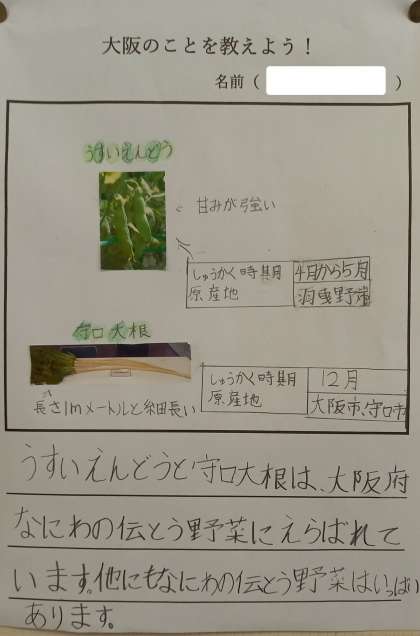 大阪のことを教えよう!
名前( )
うすいえんどう
甘みが強い
しゅうかく時期 4月から5月
原産地 羽曳野
守口大根
しゅうかく時期 12月
原産地 大阪市、守口市
長さ1mメートルと細長い
うすいえんどうと守口大根は、大阪府
なにわの伝とう野菜にえらばれて
います。他にもなにわの伝とう野菜はいっぱい
あります。